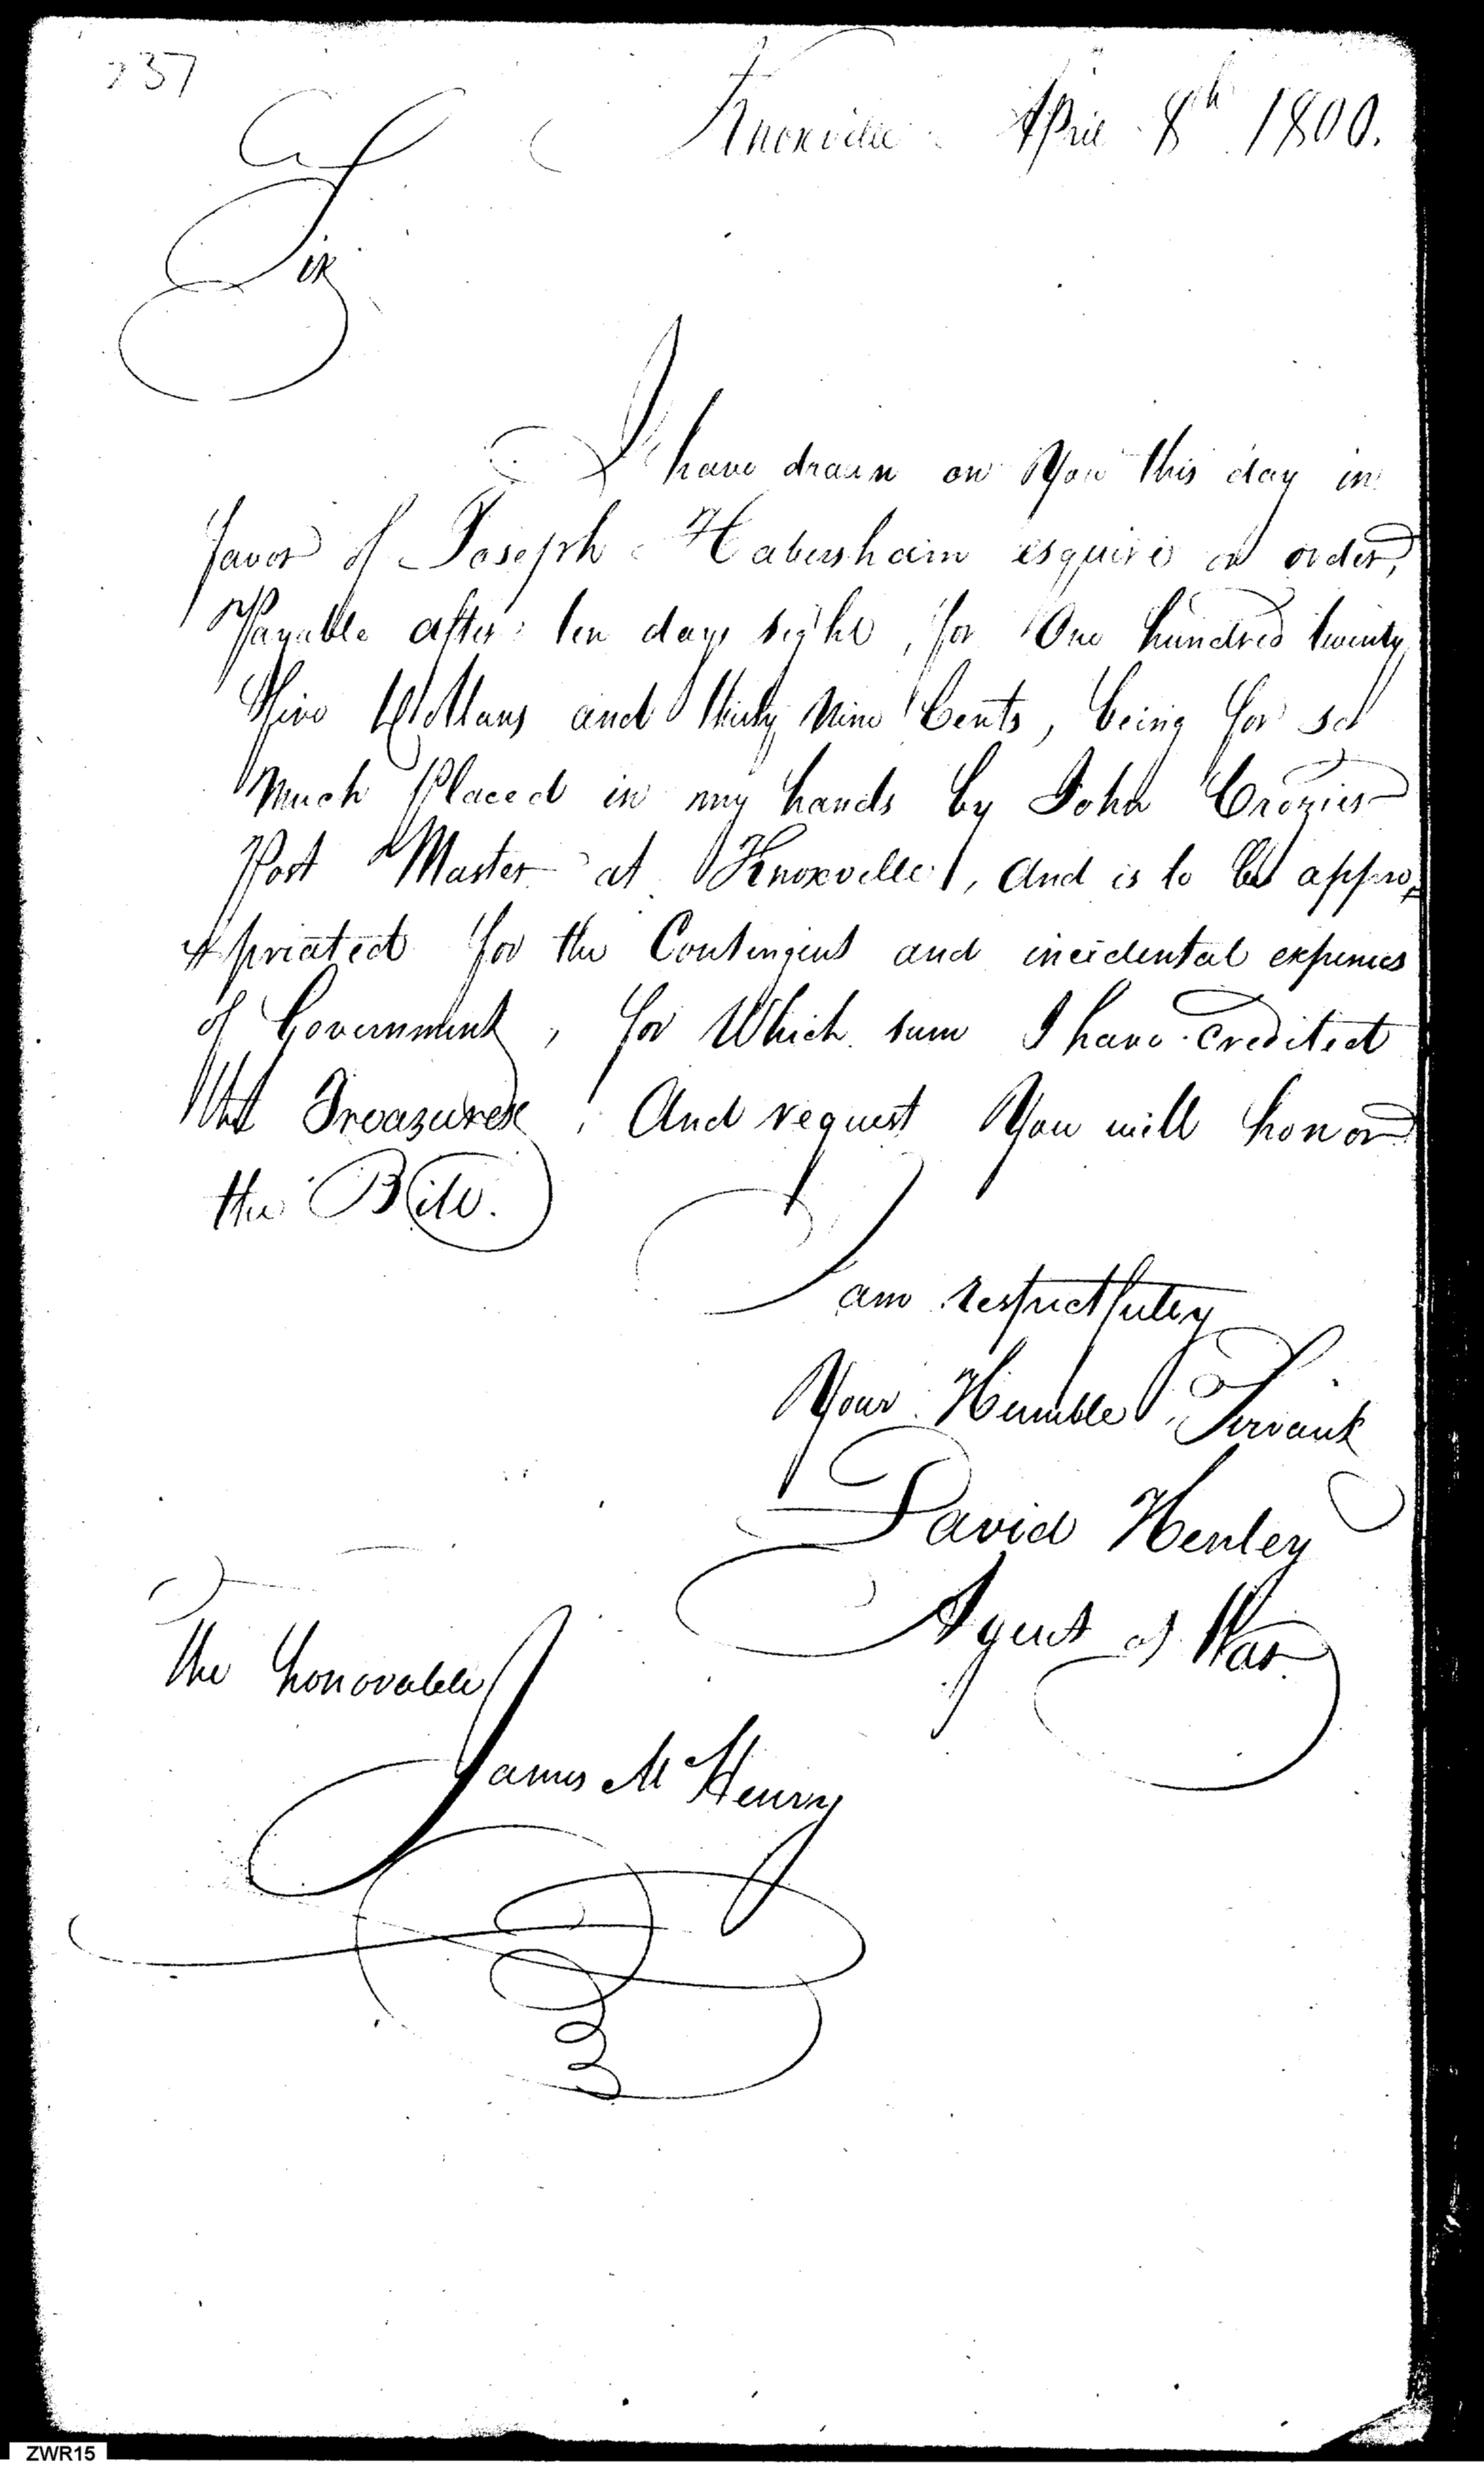 237
Knoxville April 8th 1800.
Sir
I have drawn on You this day in
favor of Joseph Habersham esquire or order,
Payable after ten days sight, for One hundred twenty
Dollars and thirty Nine Cents, being for so
Much Placed in my hands by John Crozier
Post Master at Knoxville, And is to be appro
priated for the Contingent and incidental expences
of Government, for Which sum I have credited
the Treazurer, And request You will honor
the Bill.
I am respectfully
Your Humble Servant
David Henley
Agent of War.
The honorable
James McHenry
ZWR15